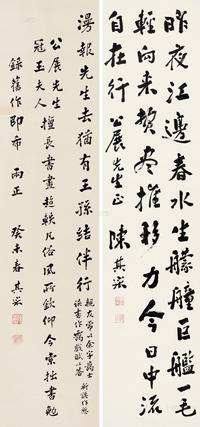 昨夜江邊春水生艨艟巨艦一毛
輕向來費盡推移力今日中流
自在行 公展先生正 陳其采
漫報先生去猶有王孫結伴行
公展先生擅長書畫超軼凡俗夙所欽仰今索拙書勉
冠玉夫人
錄舊作即希 兩正 癸未春 其采